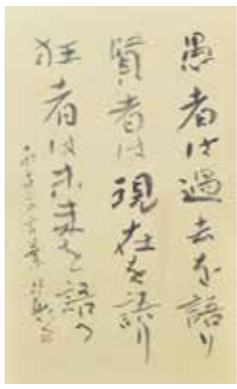 愚者は過去を語り
賢者は現在を語り
狂者は未来を語る